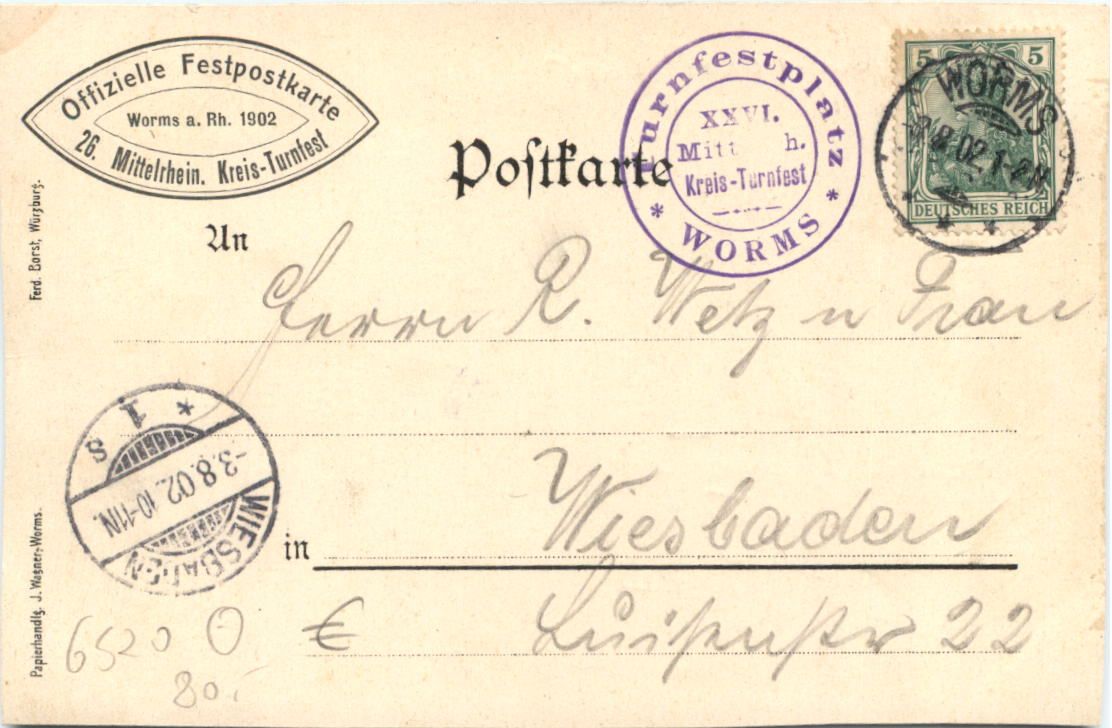 Offizielle Festpostkarte
Worms a. Rh. 1902
26. Mittelrhein. Kreis-Turnfest
Postkarte
Turnfestplatz
XXVI.
Mitt h.
Kreis-Turnfest
* WORMS *
5 5
DEUTSCHES REICH
WORMS
8.02.1-2N
An
Herrn R. Wetz u Frau
in Wiesbaden
Luisenstr 22
* 1 s
-3.8.02.10-11N.
WIESBADEN
Ferd. Borst, Würzburg.
Papierhandlg. J. Wagner-Worms.
6520 O €
80.-